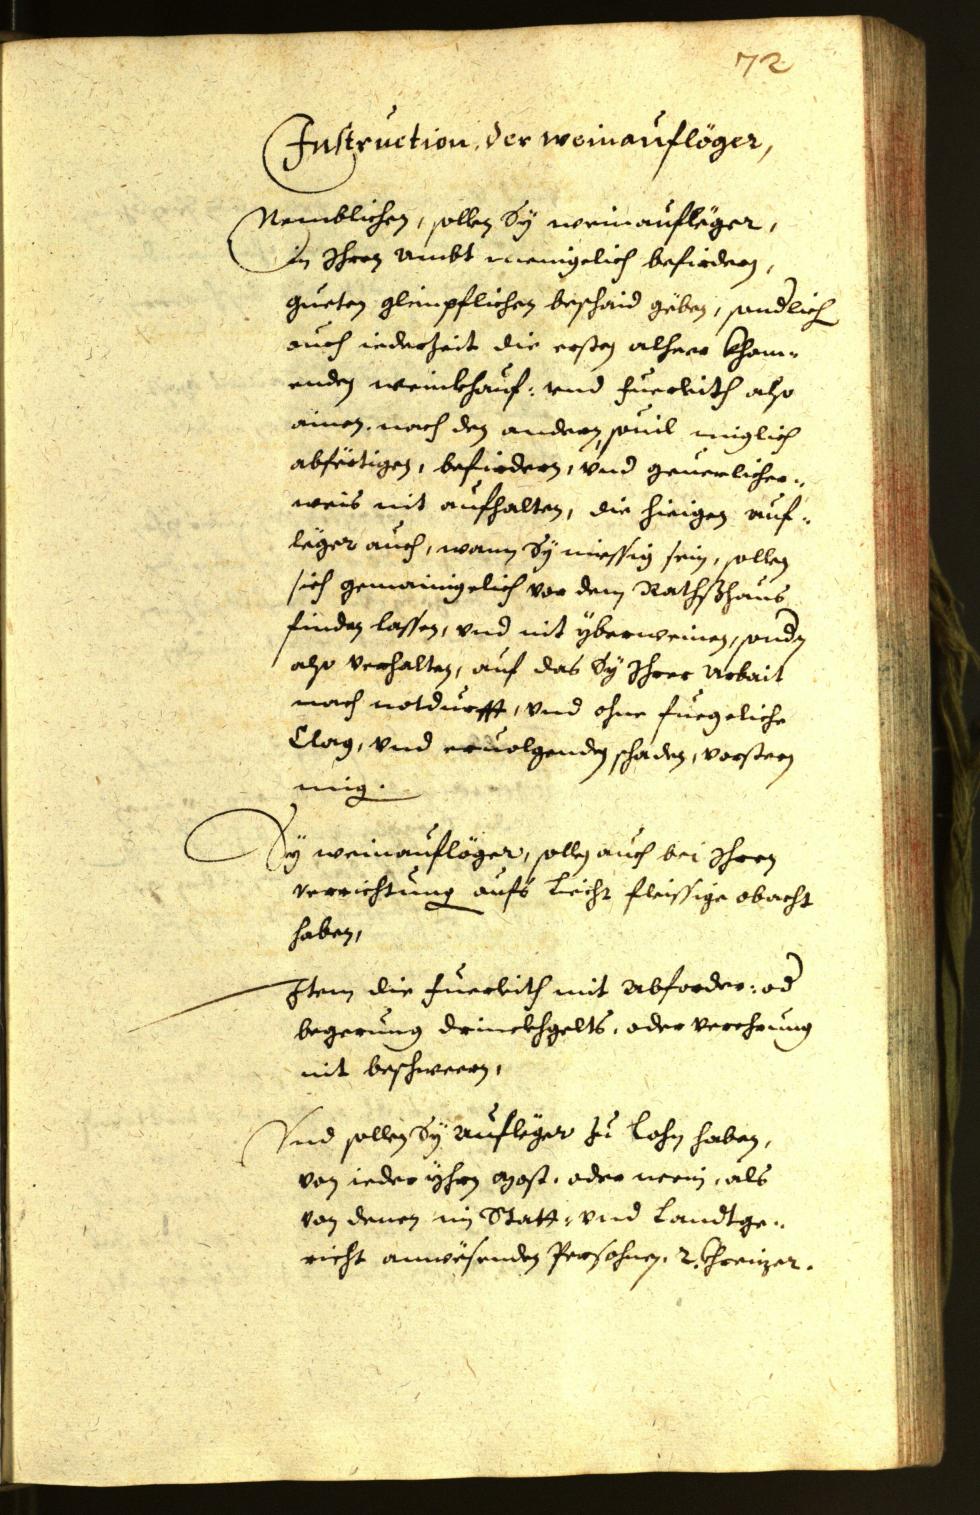 72
Instruction, der weinauflöger,
Nemblichen, sollen Sÿ weinaufleger,
in Ihren Ambt menigelich befirdern,
gueten glimpflichen beschaid geben, sonderlich
auch iederzeit die ersten alheer khom-
enden weinkhauf: vnd fuerleith also
ainen nach den andern, souil miglich
abfertigen, befirdern, vnd geuerlicher-
weis nit aufhalten, die hieigen auf-
leger auch, wann Sÿ miessig sein, sollen
sich gemainigelich vor dem Rathshaus
finden lassen, vnd nit yberweinen, sondern
also verhalten, auf das Sÿ Ihrer Arbait
nach notdurfft, vnd ohne fuegeliche
Clag, vnd eruolgenden schaden, vorsteen
mig.
Sÿ weinauflöger, sollen auch bei Ihren
verrichtung aufs Liecht fleissige obacht
haben,
Item die fuerleith mit Abforder: od
begerung drinckhgelts, oder verehrung
nit beschweern,
Vnd sollen Sÿ Aufleger zu Lohn haben,
von ieder yhrn most, oder wein, als
von denen im Statt: vnd Landtge-
richt anwesenden Persohnen, 2. khreizer.